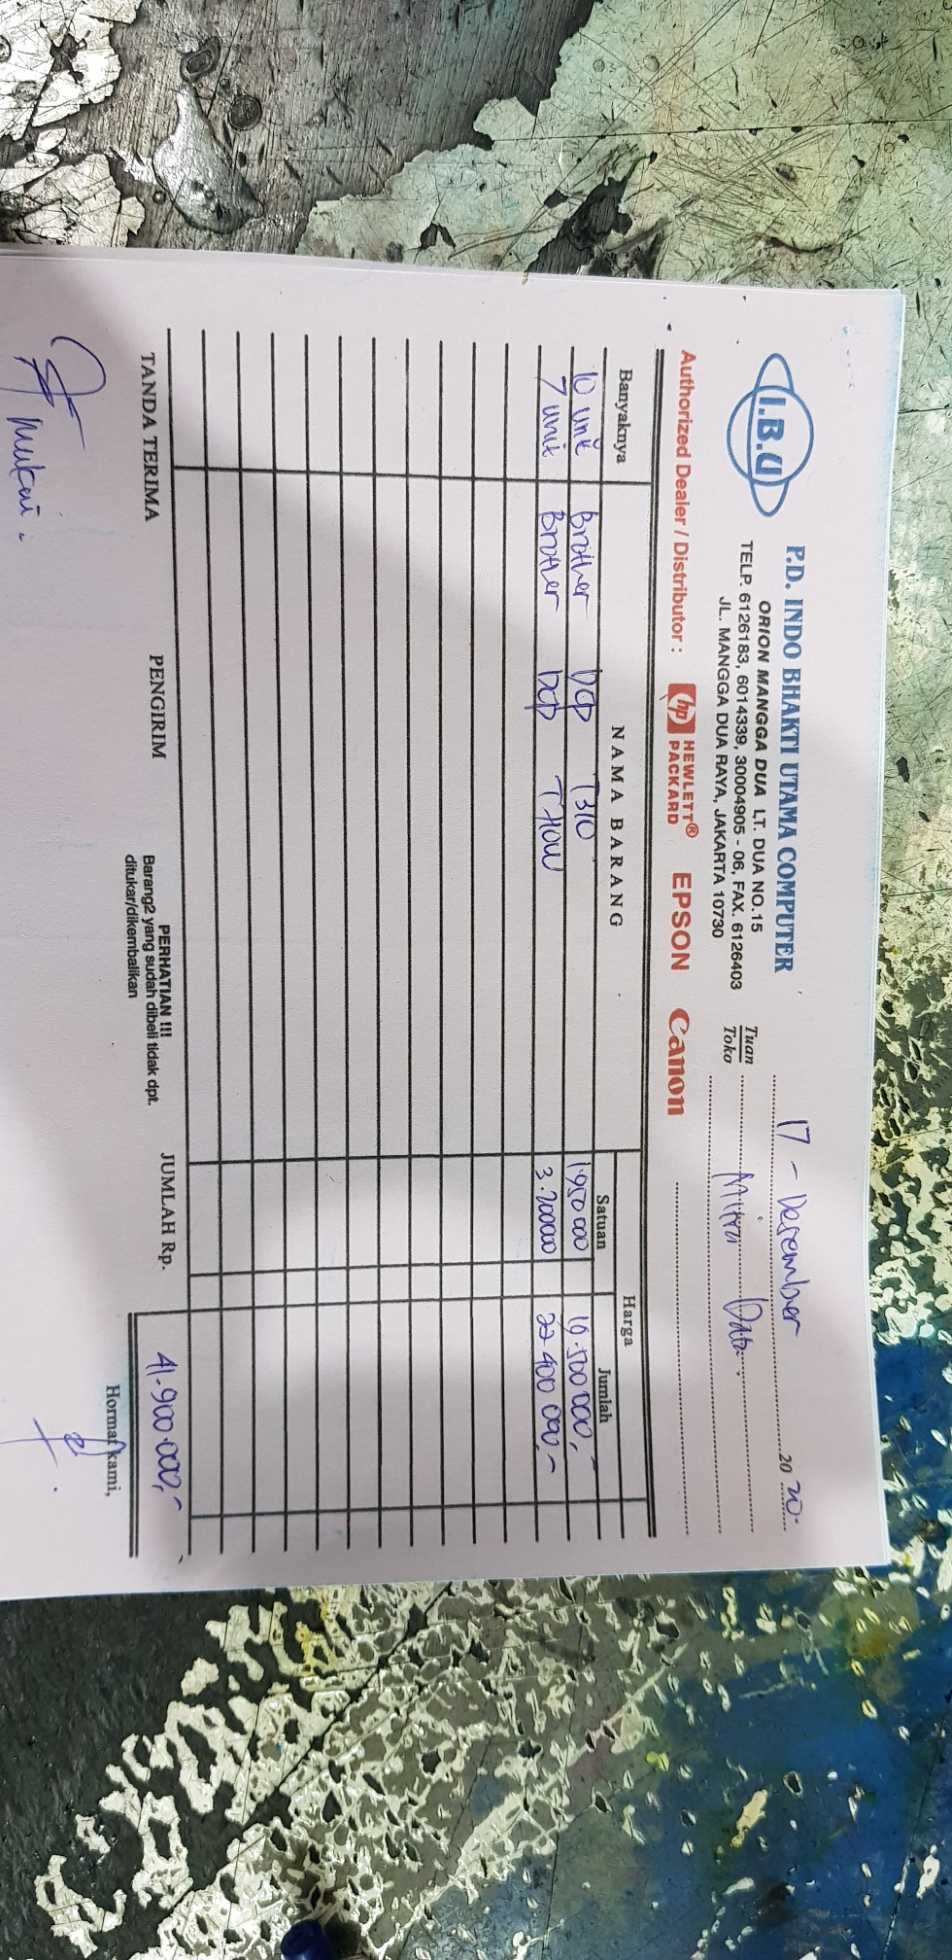 I.B.U
P.D. INDO BHAKTI UTAMA COMPUTER
ORION MANGGA DUA LT. DUA NO.15
TELP. 6126183, 6014339, 30004905 - 06, FAX. 6126403
JL. MANGGA DUA RAYA, JAKARTA 10730
17 - Desember 2020.
Tuan
Toko
Mitra Data.
Authorized Dealer / Distributor : hp HEWLETT® PACKARD EPSON Canon
Banyaknya NAMA BARANG Harga
Satuan Jumlah
10 unit Brother DCP T310 1.950 000 19.500 000,-
7 unit Brother DCP T710W 3.200000 22 400 000,-
TANDA TERIMA PENGIRIM PERHATIAN !!! JUMLAH Rp. 41.900.000,-
Barang2 yang sudah dibeli tidak dpt.
ditukar/dikembalikan
Hormat kami,